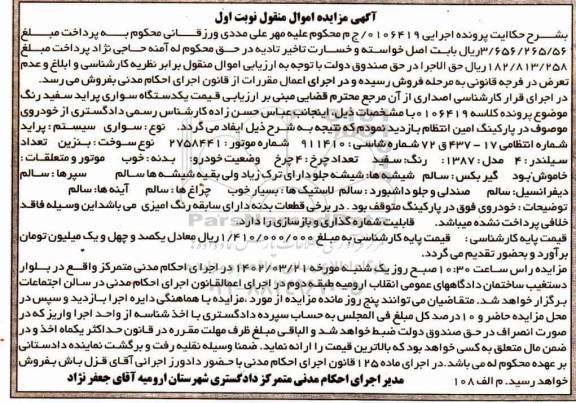 آگهی مزایده اموال منقول نوبت اول
بشرح حکایت پرونده اجرایی ۰۱۰۶۴۱۹/ج م محکوم علیه مهر علی مددی ورزقانی محکوم به پرداخت مبلغ
۳/۶۵۶/۲۶۵/۵۶ریال بابت اصل خواسته و خسارت تاخیر تادیه در حق محکوم له آمنه حاجی نژاد پرداخت مبلغ
۱۸۲/۸۱۳/۲۵۸ریال حق الاجرا در حق صندوق دولت با توجه به ارزیابی اموال منقول برابر نظریه کارشناسی و ابلاغ و عدم
تعرض در فرجه قانونی به مرحله فروش رسیده و در اجرای اعمال مقررات از قانون اجرای احکام مدنی بفروش می رسد.
در اجرای قرار کارشناسی اصداری از آن مرجع محترم قضایی مبنی بر ارزیابی قیمت یکدستگاه سواری پراید سفید رنگ
موضوع پرونده کلاسه ۰۱۰۶۴۱۹ با مشخصات ذیل: اینجانب عباس حسن زاده کارشناس رسمی دادگستری از خودروی
موصوف در پارکینگ امین انتظام بازدید نمودم که نتیجه به شرح ذیل ایفاد می گردد. نوع: سواری سیستم: پراید
شماره انتظامی ۱۷ – ۴۳۷ ق ۷۲ شماره شاسی: ۹۱۱۴۱۰ شماره موتور: ۲۷۵۸۴۴۱ نوع سوخت: بنزین تعداد
سیلندر: ۴ مدل: ۱۳۸۷ رنگ: سفید تعداد چرخ: ۴چرخ وضعیت خودرو: بدنه: خوب موتور و متعلقات:
خاموش بود گیربکس: سالم شیشه ها: شیشه جلو دارای ترک زیاد ولی بقیه شیشه ها سالم سپرها: سالم
دیفرانسیل: سالم صندلی و جلو داشبورد: سالم لاستیک ها: بسیار خوب چراغ ها: سالم آینه ها: سالم
توضیحات: خودروی فوق در پارکینگ متوقف بود. در برخی قطعات بدنه دارای سابقه رنگ امیزی می باشد این وسیله فاقد
خلافی پرداخت نشده میباشد. قابلیت شماره گذاری و بازسازی را دارد.
قیمت پایه کارشناسی: قیمت پایه کارشناسی به مبلغ ۱/۴۱۰/۰۰۰/۰۰۰ریال معادل یکصد و چهل و یک میلیون تومان
برآورد و بحضور تقدیم می گردد.
مزایده راس ساعت ۱۰:۳۰صبح روز یک شنبه مورخه ۱۴۰۲/۰۳/۲۱در اجرای احکام مدنی متمرکز واقع در بلوار
دستغیب ساختمان دادگاههای عمومی انقلاب ارومیه طبقه دوم در اجرای اعمال قانون اجرای احکام مدنی در سالن اجتماعات
برگزار خواهد شد. متقاضیان می توانند پنج روز مانده مزایده از مورد مزایده با هماهنگی دایره اجرا بازدید و سپس در
محل مزایده حاضر و ۱۰درصد کل مبلغ فی المجلس به حساب سپرده دادگستری با اخذ شناسه از واحد اجرا واریز که در
صورت انصراف در حق صندوق دولت ضبط خواهد شد و الباقی مبلغ ظرف مهلت مقرره در قانون حداکثر یکماه اخذ و در
ضمن مال متعلق به کسی خواهد بود که بالاترین قیمت را ارائه نماید. ضمنا وسیله نقلیه رفت و برگشت نماینده دادستانی
بر عهده محکوم له می باشد.در اجرای ماده ۱۲۵قانون اجرای احکام مدنی با حضور دادورز اجرائی آقای قزل باش بفروش
خواهد رسید. م الف ۱۰۸
مدیر اجرای احکام مدنی متمرکز دادگستری شهرستان ارومیه آقای جعفر نژاد